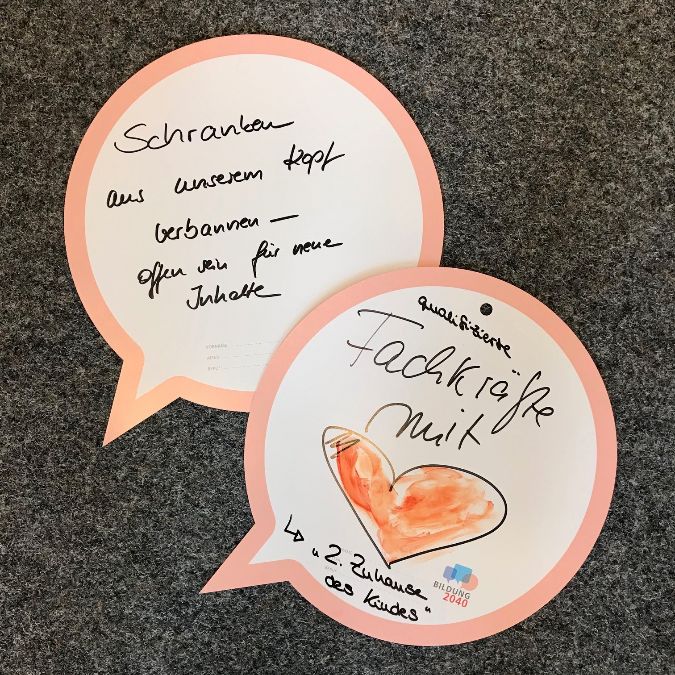 Schranken
aus unserem Kopf
verbannen —
offen sein für neue
Inhalte
VORNAME
ALTER
BERUF
qualifizierte
Fachkräfte
mit
↳ „2. Zuhause
des Kindes"
BILDUNG
2040